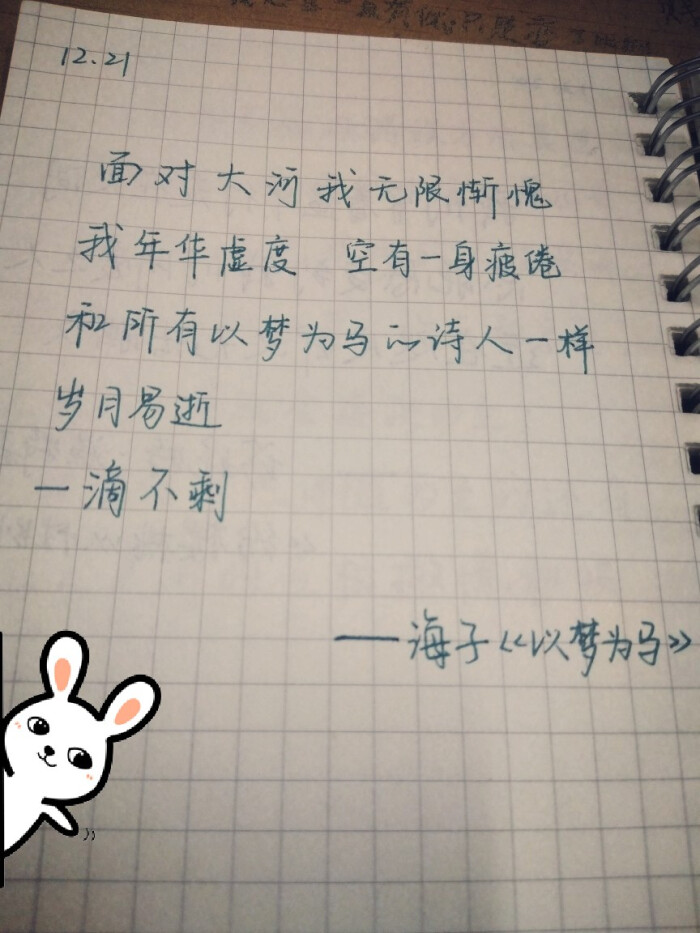 12.21
面对大河我无限惭愧
我年华虚度 空有一身疲倦
和所有以梦为马的诗人一样
岁月易逝
一滴不剩
——海子《以梦为马》